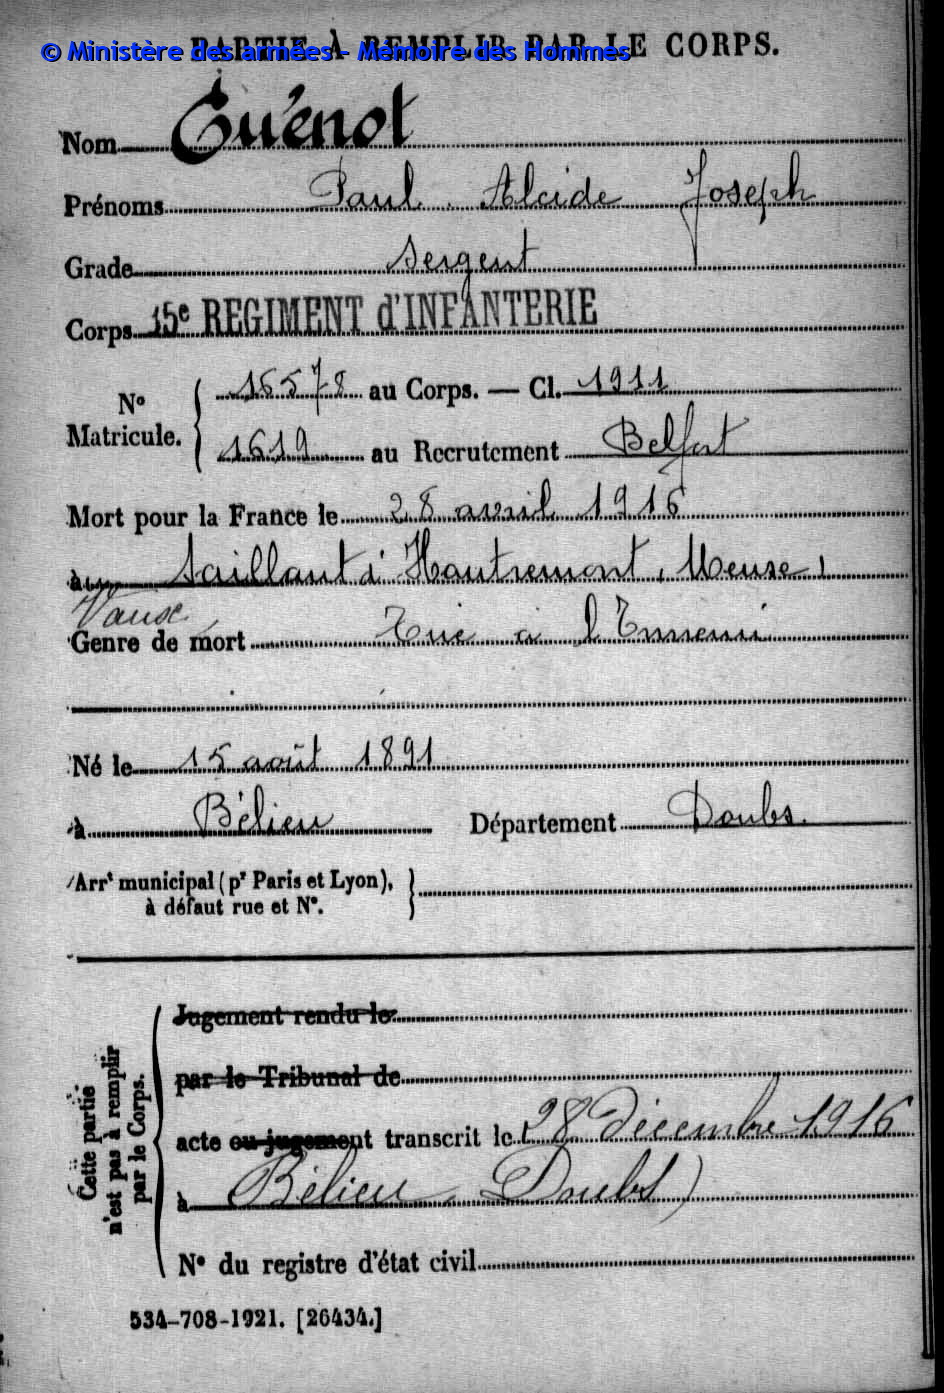 PARTIE À REMPLIR PAR LE CORPS.
© Ministère des armées - Mémoire des Hommes
Nom Guénot
Prénoms Paul Alcide Joseph
Grade Sergent
Corps 15e REGIMENT d'INFANTERIE
N° Matricule. { 16578 au Corps. — Cl. 1911
1619 au Recrutement Belfort
Mort pour la France le 28 avril 1916
à Saillant d'Hautremont, Meuse,
Vaux
Genre de mort Tué à l'Ennemi
Né le 15 août 1891
à Bélieu Département Doubs.
Arrt municipal (pr Paris et Lyon),
à défaut rue et N°.
Cette partie n'est pas à remplir par le Corps.
Jugement rendu le
par le Tribunal de
acte ou jugement transcrit le 28 Décembre 1916
à Bélieu (Doubs)
N° du registre d'état civil
534-708-1921. [26434.]